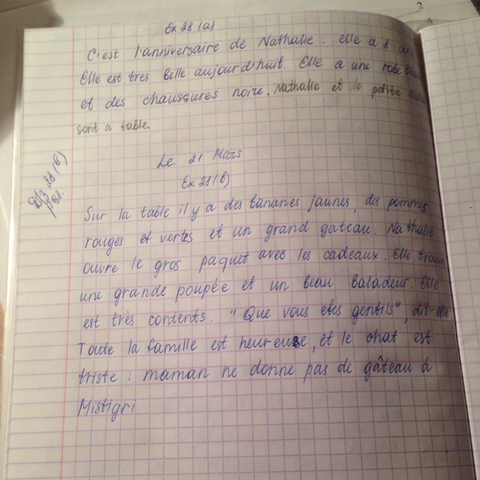 Ex 28 (a)
C'est l'anniversaire de Nathalie : elle a 8 ans
Elle est très belle aujourd'huit. Elle a une robe
et des chaussures noire. Nathalie et le petite
sont a table.
Le 21 Mars
Ex 28 (b)
Sur la table il y a des bananes jaunes, des pommes
rouges et vertes et un grand gateau. Nathalie
ouvre le gros paquet avec los cadeaux. Elle trouve
une grande poupée et un beau baladeur. Elle
est très contents. "Que vous etes gentils", dit-elle
Toute la famille est heureuse, et le chat est
triste : maman ne donne pas de gâteau à
Mistigri